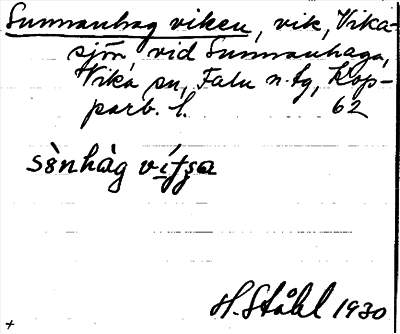 Sunnanhagviken, vik, Vika-
sjön, vid Sunnanhaga,
Vika sn, Falu n. tg, Kop-
parb. l. 62
H. Ståhl 1930
+